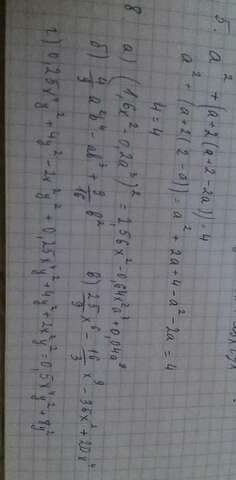 5. a² + (a+2(a+2-2a)) = 4
a² + (a+2(2-a)) = a² + 2a + 4 - a² - 2a = 4
4 = 4
8
а) (1,6x² - 0,2a⁴)² = 2,56x² - 0,64x²a⁴ + 0,04a⁸
б) 4/9 a⁴b⁴ - ab³ + 9/16 b² в) 25/9 x⁶ - 16/3 x⁹ - 36x² + 20x⁴
г) 0,25x⁴y² + 4y² - 2x²y² + 0,25x⁴y² + 4y² + 2x²y² = 0,5x⁴y² + 8y²